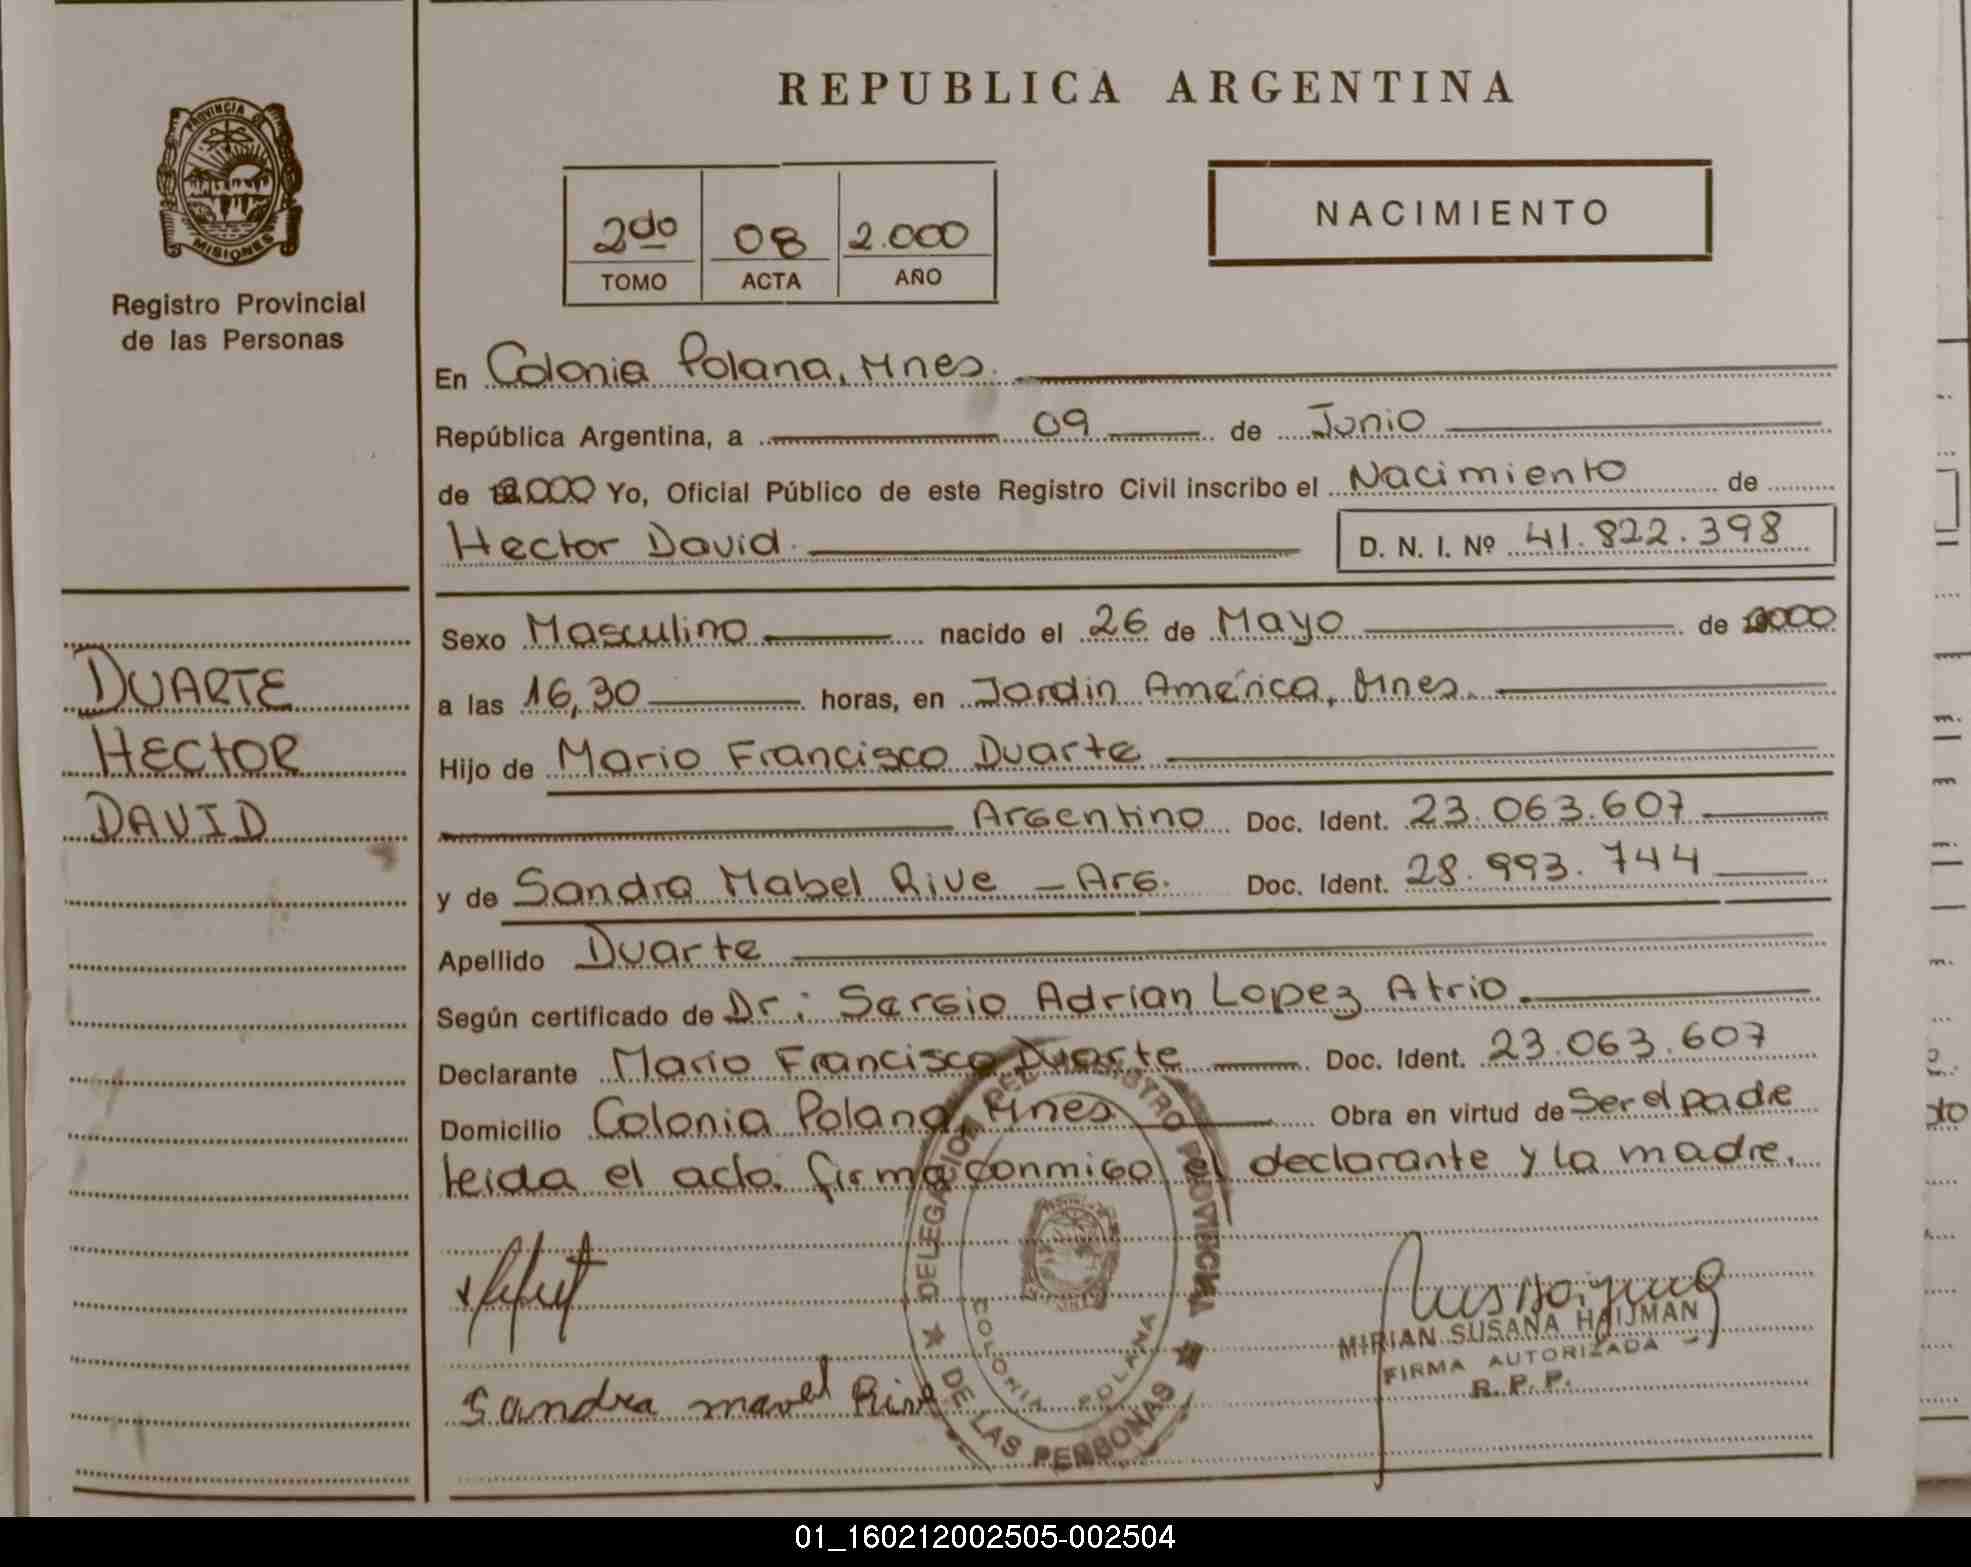 REPUBLICA ARGENTINA
PROVINCIA DE
MISIONES
Registro Provincial
de las Personas
2do 08 2.000
TOMO ACTA AÑO
NACIMIENTO
En Colonia Polana, Mnes.
República Argentina, a 09 de Junio
de 2000 Yo, Oficial Público de este Registro Civil inscribo el Nacimiento de
Hector David D. N. I. Nº 41.822.398
Sexo Masculino nacido el 26 de Mayo de 2000
a las 16,30 horas, en Jardin América, Mnes.
Hijo de Mario Francisco Duarte
Argentino Doc. Ident. 23.063.607
y de Sandra Mabel Rive – Arg. Doc. Ident. 28.993.744
Apellido Duarte
Según certificado de Dr: Sergio Adrian Lopez Atrio.
Declarante Mario Francisco Duarte Doc. Ident. 23.063.607
Domicilio Colonia Polana, Mnes Obra en virtud de Ser el padre
leida el acta. firma conmigo el declarante y la madre.
DUARTE
HECTOR
DAVID
DELEGACION DEL REGISTRO PROVINCIAL
★ DE LAS PERSONAS ★
COLONIA POLANA
Sandra mavel Rive
MIRIAN SUSANA HAIJMAN
FIRMA AUTORIZADA
R. P. P.
01_160212002505-002504